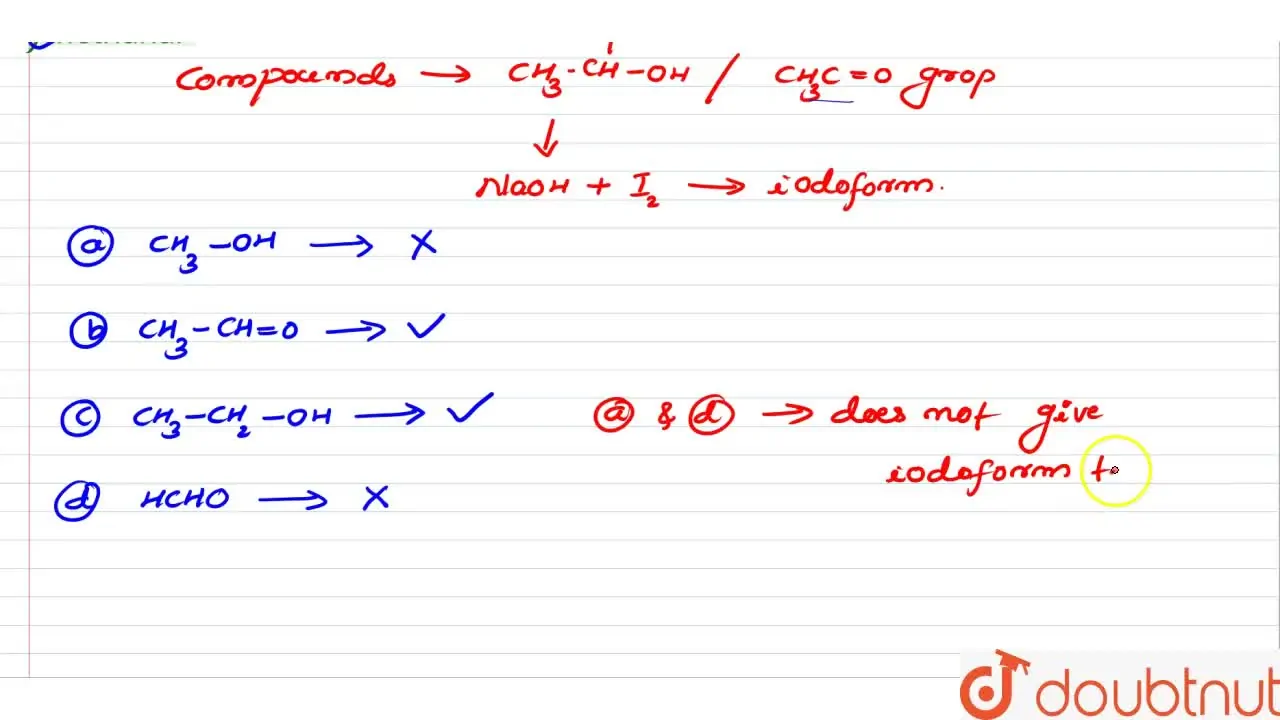 Compounds → CH₃-CH-OH / CH₃C=O grop
↓
NaOH + I₂ → iodoform.
(a) CH₃-OH → X
(b) CH₃-CH=O → ✓
(c) CH₃-CH₂-OH → ✓
(a) & (d) → does not give
iodoform t
(d) HCHO → X
doubtnut